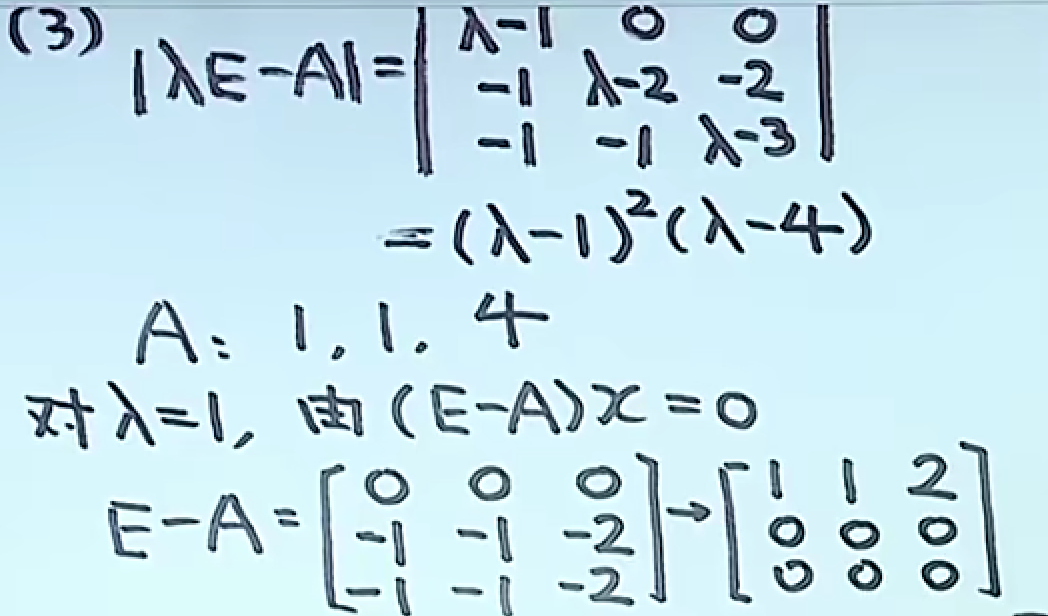 (3) |λE-A|=| λ-1 0 0
-1 λ-2 -2
-1 -1 λ-3 |
=(λ-1)²(λ-4)
A: 1, 1, 4
对λ=1, 由(E-A)x=0
E-A=[0 0 0
-1 -1 -2
-1 -1 -2]→[1 1 2
0 0 0
0 0 0]